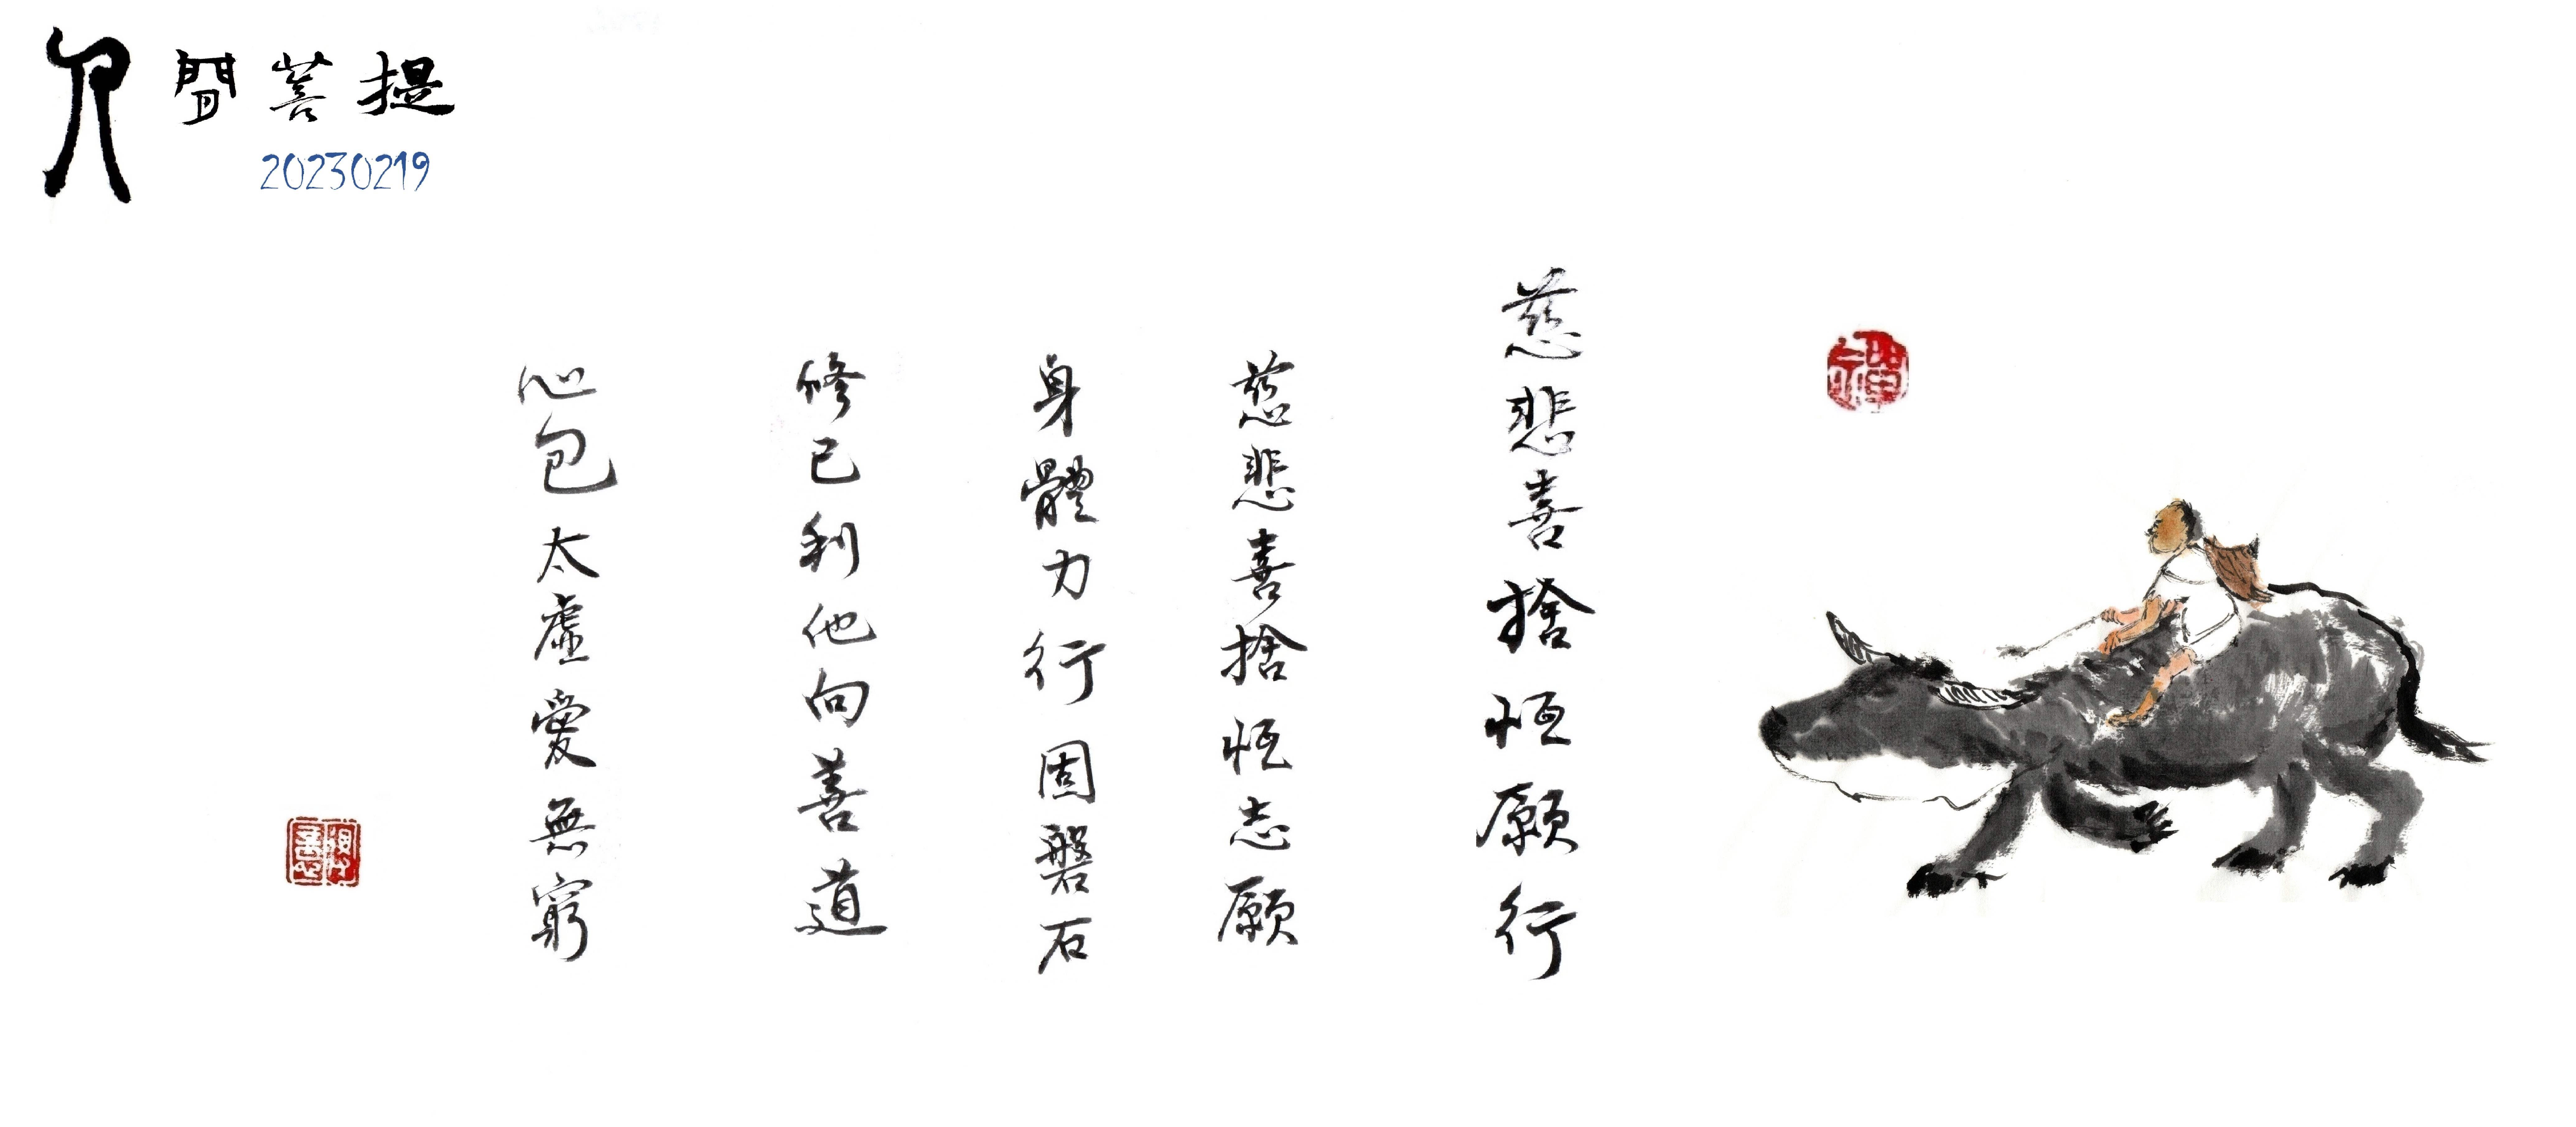 人間菩提
20230219
禪
慈悲喜捨恒願行
慈悲喜捨恒志願
身體力行固磐石
修己利他向善道
心包太虛愛無窮